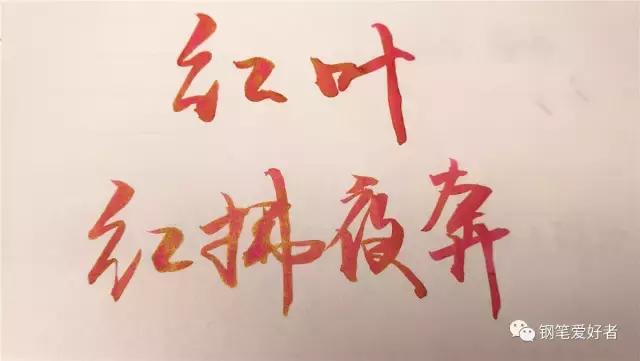 红叶
红拂夜奔
钢笔爱好者